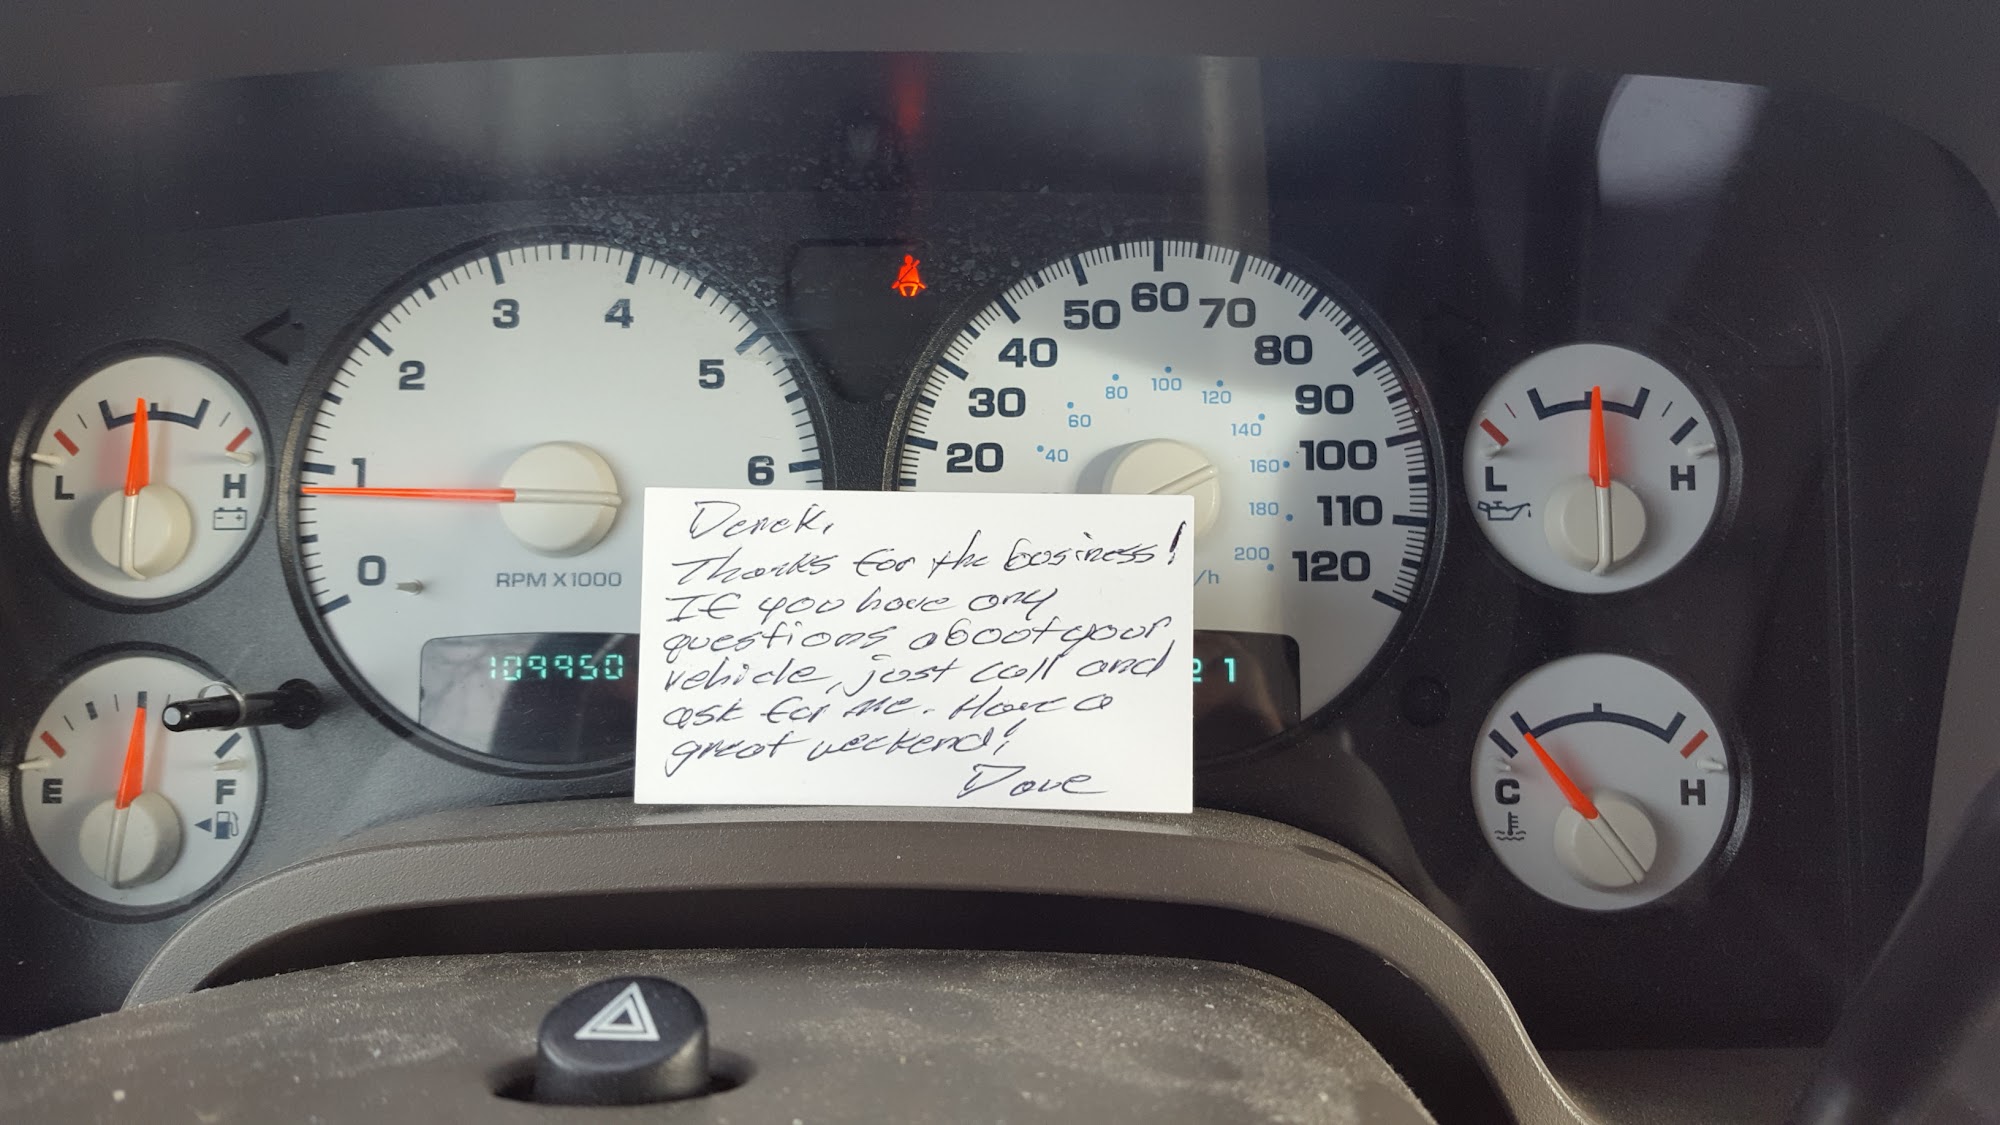 3 4
2 5
1 6
0
RPM X 1000
109950
50 60 70
40 80
30 90
20 100
110
120
80 100 120
60 140
40 160
180
200
/h
21
L H
E F
L H
C H
Derek,
Thanks for the business!
If you have any
questions about your
vehicle, just call and
ask for me. Have a
great weekend!
Dave